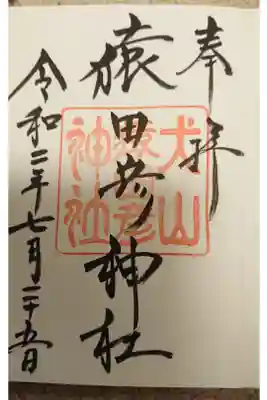 奉拝
猿田彦神社
犬山
猿田彦
神社
令和二年七月二十五日